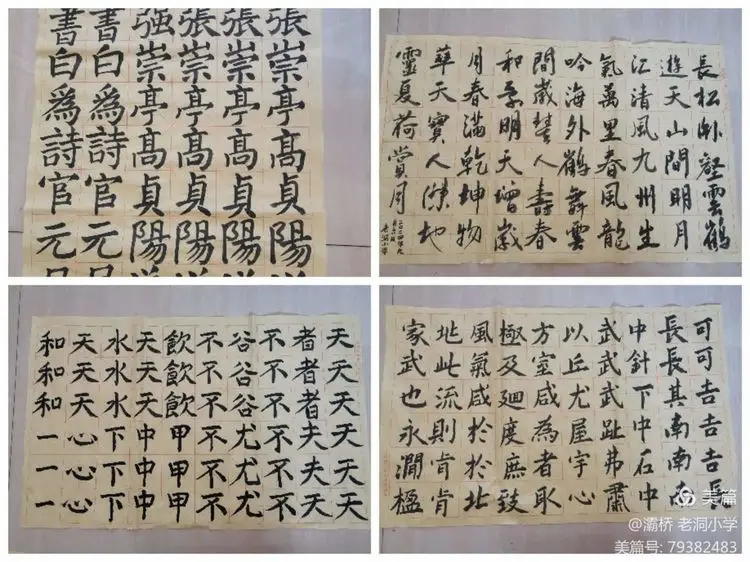 張崇亭髙貞陽
張崇亭髙貞陽
張崇亭髙貞陽
强崇亭髙貞陽
書白為詩官元
書白為詩官元
長松卧壑雲鶴
遊天山間明月
江清風九州生
氣萬里春風龍
吟海外鶴舞雲
間歲華人壽春
和景明天增歲
月春滿乾坤物
華天寶人傑地
靈夏荷賞月
天天天天天天
者者者夫夫天
不不不不不不
谷谷谷尤尤尤
不不不不不不
飲飲飲甲甲甲
天天天中中中
水水水下下下
天天天心心心
和和和一一一
可可吉吉吉長
長長其南南南
中針下中石中
武武武趾弗肅
以丘尤屋宇心
方室咸為者取
極及廻度廡
風氣咸於於北
地此流則肯肯
家武也永澗極
美篇
@灞桥 老洞小学
美篇号: 79382483